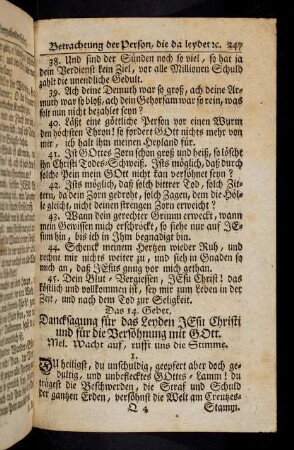 Betrachtung der Person, die da leydet ꝛc. 247
38. Und sind der Sünden noch so viel, so hat ja
dein Verdienst kein Ziel, vor alle Millionen Schuld
gabst die unendliche Gedult.
39. Ach deine Demuth war so groß, ach deine Ar-
muth war so bloß, ach dein Gehorsam war so rein, was
solt nun nicht bezahlet seyn?
40. Läßt eine göttliche Person vor einen Wurm
den höchsten Thron! so fordert GOtt nichts mehr von
mir, ich halt ihm meinen Heyland für.
41. Ist GOttes Zorn schon groß und heiß, so löscht
ihn Christi Todes-Schweiß. Ists möglich, daß durch
solche Pein mein GOtt nicht kan versöhnet seyn?
42. Ists möglich, daß solch bittrer Tod, solch Zit-
tern, da dein Zorn gedroht, solch Zagen, dem die Höl-
le gleich, nicht deinen strengen Zorn erweich?
43. Wann dein gerechter Grimm erweckt, wann
mein Gewissen mich erschröckt, so siehe nur auf JE-
sum hin, bis ich in Ihm begnadigt bin.
44. Schenck meinem Hertzen wieder Ruh, und
rechne mir nichts weiter zu, und sieh in Gnaden so
mich an, daß JEsus gnug vor mich gethan.
45. Dein Blut-Vergiessen, JEsu Christ! das
köstlich und vollkommen ist, sey mir zum Leben in der
Zeit, und nach dem Tod zur Seligkeit.
Das 14. Gebet.
Dancksagung für das Leyden JEsu Christi
und für die Versöhnung mit GOtt.
Mel. Wacht auf, rufft uns die Stimme.
1.
DU heiligst, du unschuldig, geopfert aber doch ge-
dultig, und unbeflecktes GOttes-Lamm! du
trägest die Beschwerden, die Straf und Schuld
der gantzen Erden, versöhnst die Welt am Creutzes-
Q 4 Stamm.